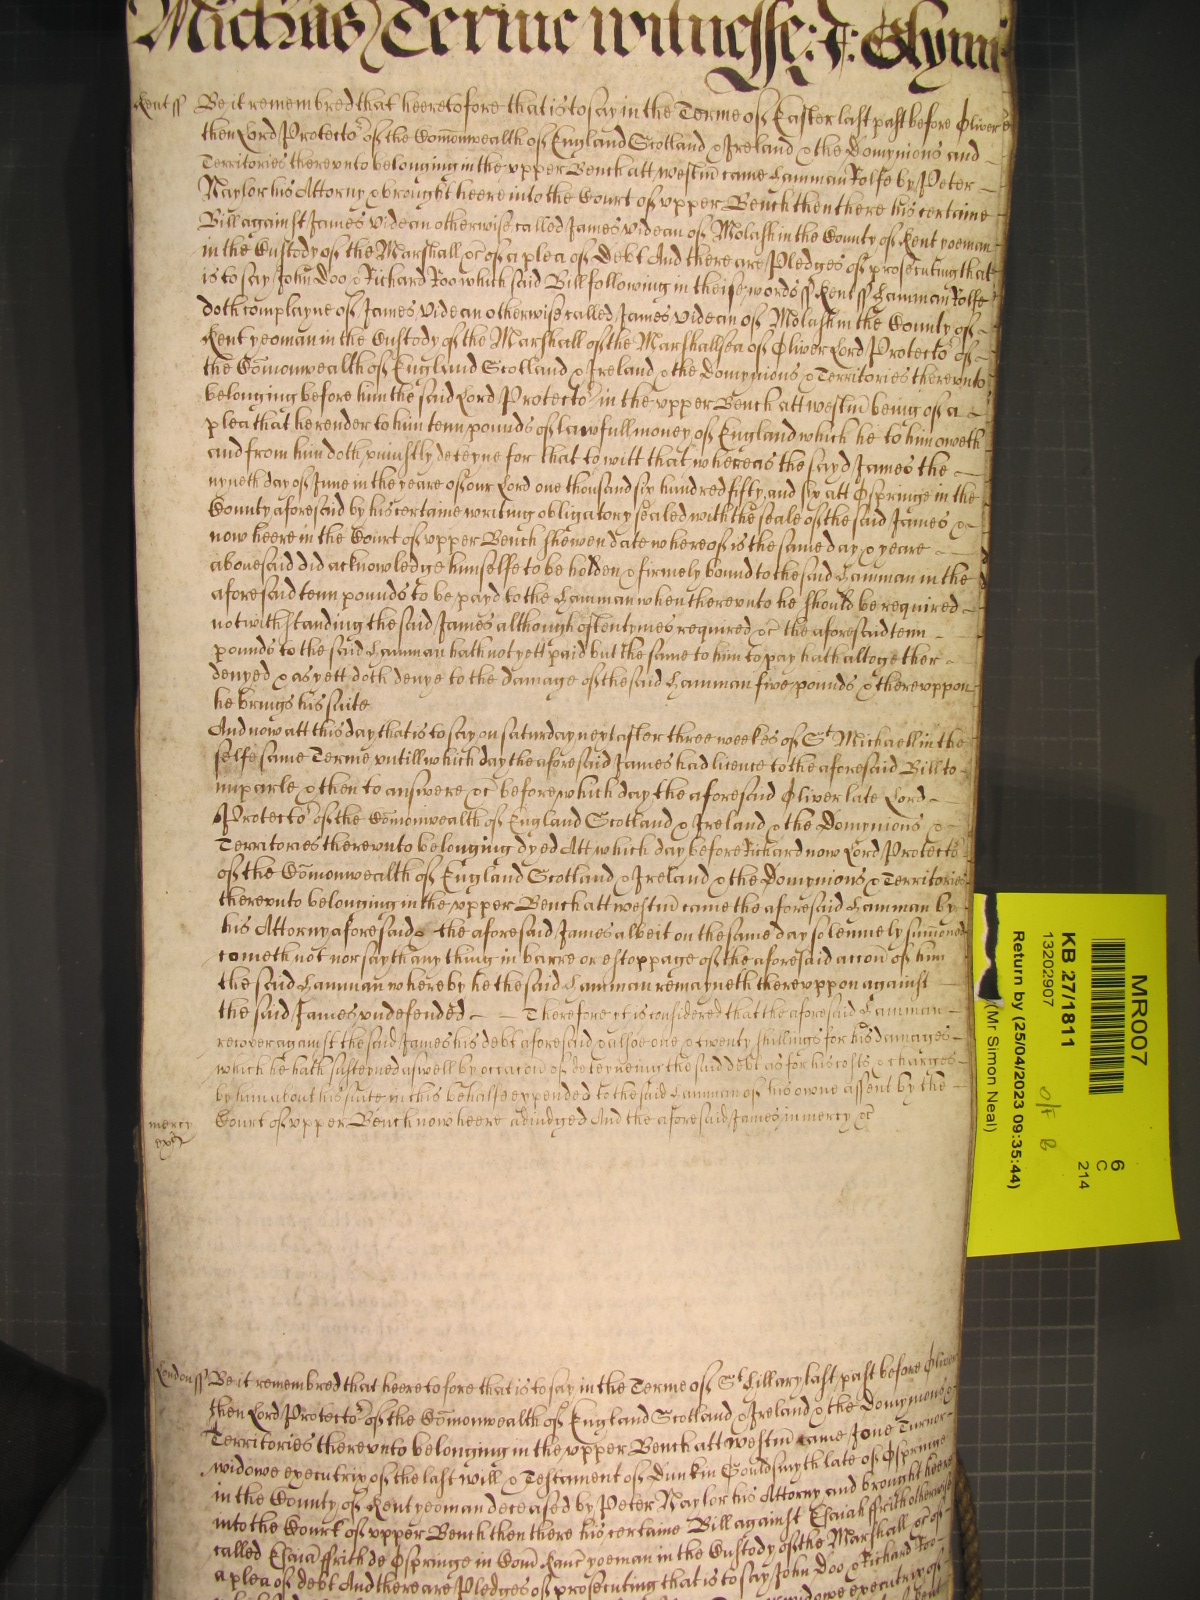 Michas Terme witnesse: J: Glynn
Kent ss Be it remembred that heeretofore that is to say in the Terme of Easter last past before Oliver
then Lord Protector of the Comonwealth of England Scotland & Ireland & the Dominyions and
Territories therevnto belonging in the vpper Bench att westm came Hamman Rolfe by Peter
Naylor his Attorny & brought heere into the Court of vpper Bench then there his certaine
Bill against James Videan otherwise called James Videan of Molash in the County of Kent yeoman
in the Custody of the Marshall &c of a plea of Debt And there are Pledges of prosecuting that
is to say John Doo & Richard Roo which said Bill following in theise words ss Kent ss Hamman Rolfe
doth complayne of James Videan otherwise called James Videan of Molash in the County of
Kent yeoman in the Custody of the Marshall of the Marshallsea of Oliver Lord Protector of
the Comonwealth of England Scotland & Ireland & the Domynions & Territories therevnto
belonging before him the said Lord Protector in the vpper Bench att westm being of a
plea that he render to him tenn pounds of lawfull money of England which he to him oweth
and from him doth vniustly deteyne for that to witt that whereas the sayd James the
nyneth day of June in the yeare of our Lord one thousand six hundred fifty and six att Ospringe in the
County aforesaid by his certaine writing obligatory sealed with the seale of the said James &
now heere in the Court of vpper Bench shewen date whereof is the same day & yeare
abovesaid did acknowledge himselfe to be holden & firmely bound to the said Hamman in the
aforesaid tenn pounds to be payd to the Hamman when therevnto he should be required
notwithstanding the said James although oftentymes required &c the aforesaid tenn
pounds to the said Hamman hath not yett paid but the same to him to pay hath altogether
denyed & as yett doth denye to the damage of the said Hamman five pounds & therevppon
he brings his suite
And now att this day that is to say on saturday next after three weekes of St Michaell in the
selfe same Terme vntill which day the aforesaid James had licence to the aforesaid Bill to
imparle & then to answere &c before which day the aforesaid Oliver late Lord
Protector of the Comonwealth of England Scotland & Ireland & the Domynions &
Territories therevnto belonging dyed Att which day before Richard now Lord Protector
of the Comonwealth of England Scotland & Ireland & the Domynions & Territories
therevnto belonging in the vpper Bench att westm came the aforesaid Hamman by
his Attorny aforesaid & the aforesaid James albeit on the same day solemnely sumoned
cometh not nor sayth any thing in barre or estoppage of the aforesaid accon of him
the said Hamman whereby he the said Hamman remayneth therevppon against
the said James vndefended Therefore it is considered that the aforesaid Hamman
recover against the said James his debt aforesaid & alsoe one & twenty shillings for his damages
which he hath susteyned aswell by occacon of deteyneing the said debt as for his costs & charges
by him about his suite in this behalfe expended to the said Hamman of his owne assent by the
mercy Court of vpper Bench now heere adiudged And the aforesaid James in mercy &c
London ss Be it remembred that heeretofore that is to say in the Terme of St Hillary last past before Oliver
then Lord Protector of the Comonwealth of England Scotland & Ireland & the Domynions &
Territories therevnto belonging in the vpper Bench att westm came Jone Turnor
widowe executrix of the last will & Testament of Dunkin Gouldsmyth late of Ospringe
in the County of Kent yeoman deceased by Peter Naylor his Attorny and brought heere
into the Court of vpper Bench then there his certaine Bill against Esaiah ffrith otherwise
called Esaiā ffrith de Ospringe in Com Kanc yeoman in the Custody of the Marshall &c of
a plea of debt And there are Pledges of prosecuting that is to say John Doo & Richard Roo
widowe executrix of
MR007
6
C
214
KB 27/1811
13202907
Return by (25/04/2023 09:35:44)
(Mr Simon Neal)